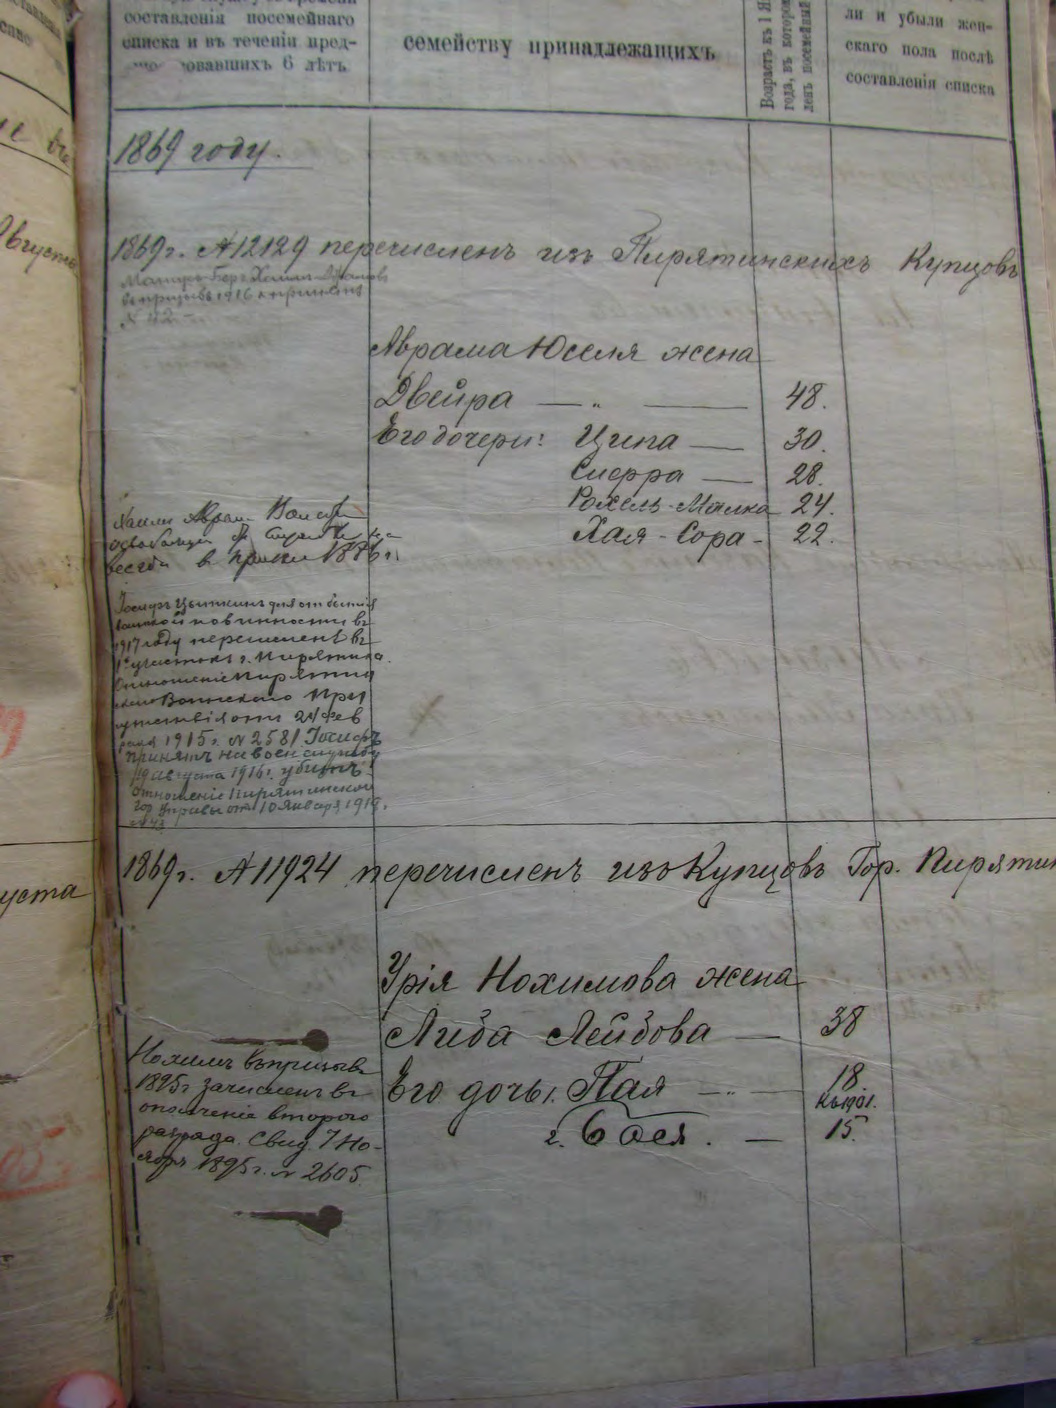 составленія посемейнаго
списка и въ теченіи пред-
шествовавшихъ 6 лѣтъ
семейству принадлежащихъ
Возрастъ къ 1 Я
года, въ котором
ленъ посемейный
ли и убыли жен-
скаго пола послѣ
составленія списка
Августа
1869 году.
1869 г. № 12129 перечисленъ изъ Пирятинскихъ Купцовъ
въ призывъ 1916 г. принятъ
№ 42
Аврама Юселя жена
Двейра — „ — 48.
Его дочери: Ципа — 30.
Сиерра — 28.
Рохель-Малка 24.
Хая-Сора - 22.
в 1886 г.
Іосифъ Цыткинъ для отбытія
воинской повинности въ
1917 году перечисленъ въ
1й участокъ г. Пирятина.
Отношеніе Пирятин
скаго Воинскаго При
сутствія отъ 24 фев
раля 1915 г. № 2581. Іосифъ
принятъ на воен службу
19 августа 1916 г. убитъ.
отношеніе Пирятинской
гор Управы от 10 Января 1919.
№ 43
1869 г. № 11924 перечисленъ изъ Купцовъ Гор. Пирятин
уста
Урія Нохимова жена
Либа Лейбова — 38
Его дочь 1. Пая — „ — 18.
Къ 1901.
2. Бося. — 15.
Нохимъ въ призывъ
1895 г зачисленъ въ
ополченіе втораго
разряда. Свид. 7 Но-
ября 1895 г. № 2605.